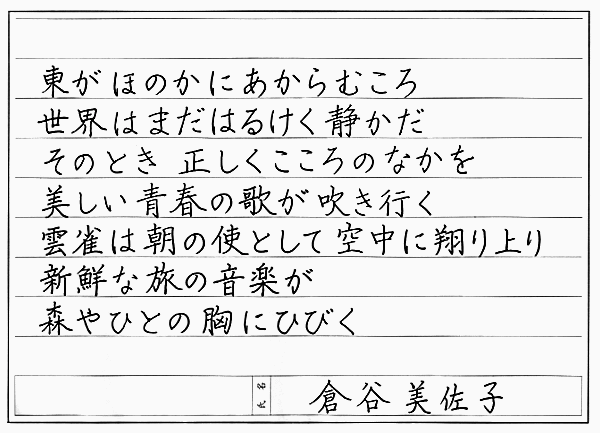 東がほのかにあからむころ
世界はまだはるけく静かだ
そのとき 正しくこころのなかを
美しい青春の歌が吹き行く
雲雀は朝の使として空中に翔り上り
新鮮な旅の音楽が
森やひとの胸にひびく
氏名
倉谷美佐子